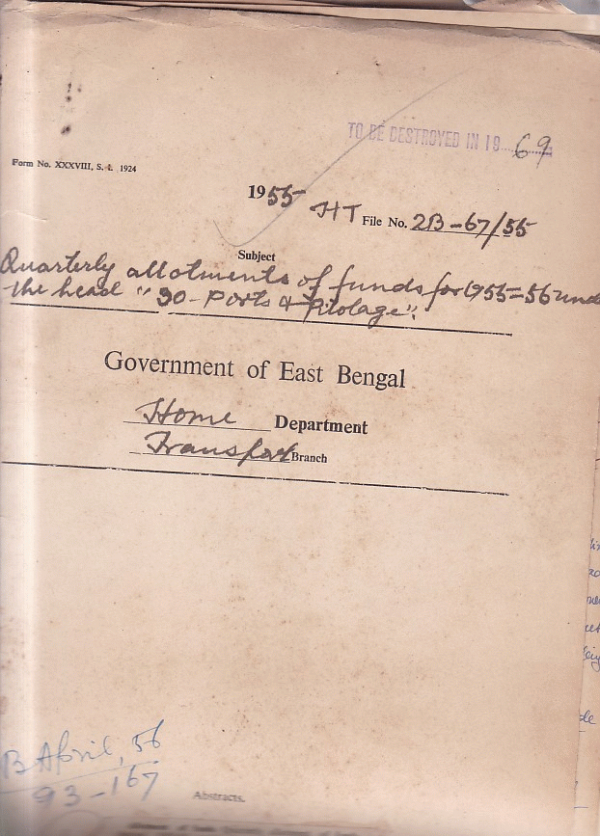 TO BE DESTROYED IN 19......69
Form No. XXXVIII, S. I. 1924
1955 HT File No. 2B-67/55
Subject
Quarterly allotments of funds for 1955-56 under
the head "30-Ports & Pilotage".
Government of East Bengal
Home Department
Transport Branch
B April, 56
93-167
Abstracts.